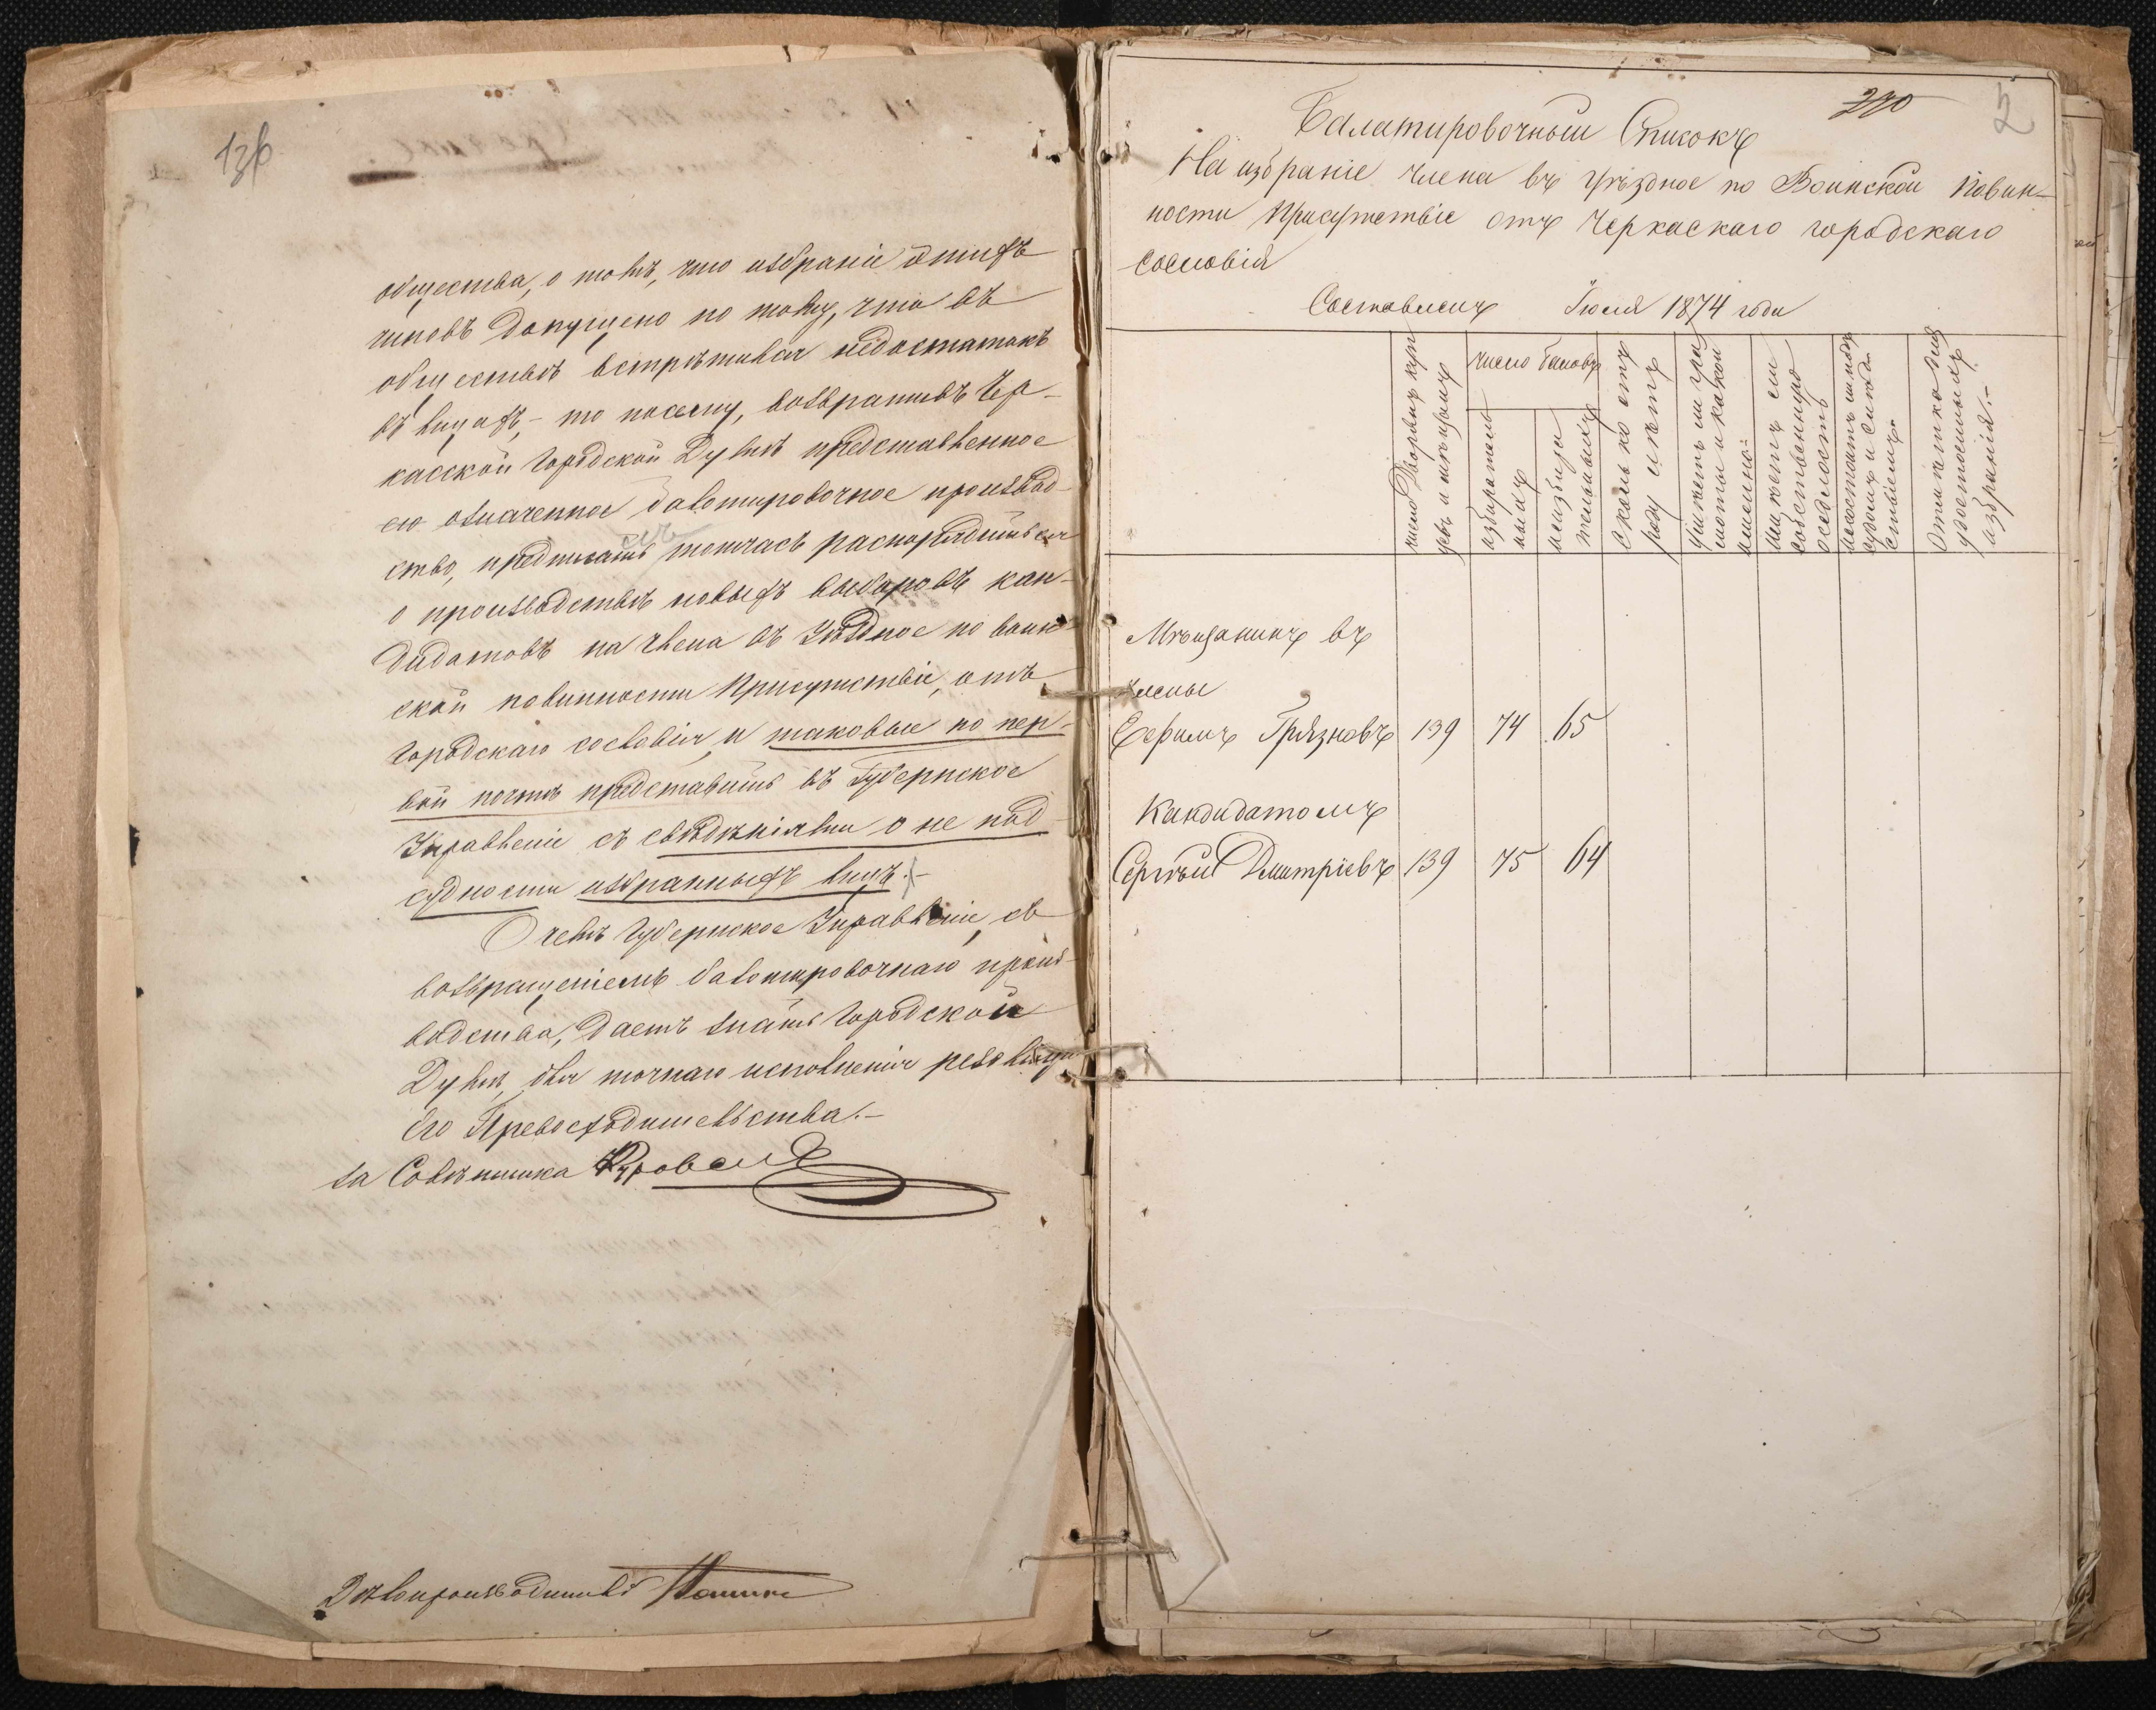 136
общества, о томъ, что избраніе этихъ
чиновъ допущено по тому, что въ
обществѣ встрѣтился недостатокъ
въ лицахъ, – то посему, возвративъ Чер-
касской Городской Думѣ представленное
ею означенное баллотировочное производ-
ство, предписать ей тотчасъ распорядиться
о производствѣ новыхъ выборовъ кан-
дидатовъ на члена въ Уѣздное по воин-
ской повинности Присутствіе, отъ
городскаго сословія, и таковые по пер-
вой почтѣ представить въ Губернское
Управленіе съ свѣдѣніями о не под-
судности избранныхъ лицъ. –
О чемъ Губернское Управленіе, съ
возвращеніемъ балотировочнаго произ-
водства, даетъ знать Городской
Думѣ, для точнаго исполненія резолюціи
Его Превосходительства. –
за Совѣтника
Дѣлопроизводитель
280
25
Балатировочный Списокъ
На избраніе члена въ Уѣздное по Воинской Повин-
ности Присутствіе отъ Черкаскаго городскаго
сословія
Составленъ Іюля 1874 года
число Дворянъ куп
цовъ и мѣщанъ
число баловъ
избиратель
ныхъ
неизбира
тельныхъ
Сколько отъ
роду лѣтъ
Имѣетъ ли гра
моты и какой
именно
Имѣетъ ли
собственную
оседлость
несостоитъ ли подъ
судомъ и слѣд
ствіемъ.
Отмѣтка для
удостоенныхъ
избранія. –
Мѣщанинъ въ
члены
Ефимъ Грязновъ 139 74 65
Кандидатомъ
Сергѣй Дмитріевъ 139 75 64